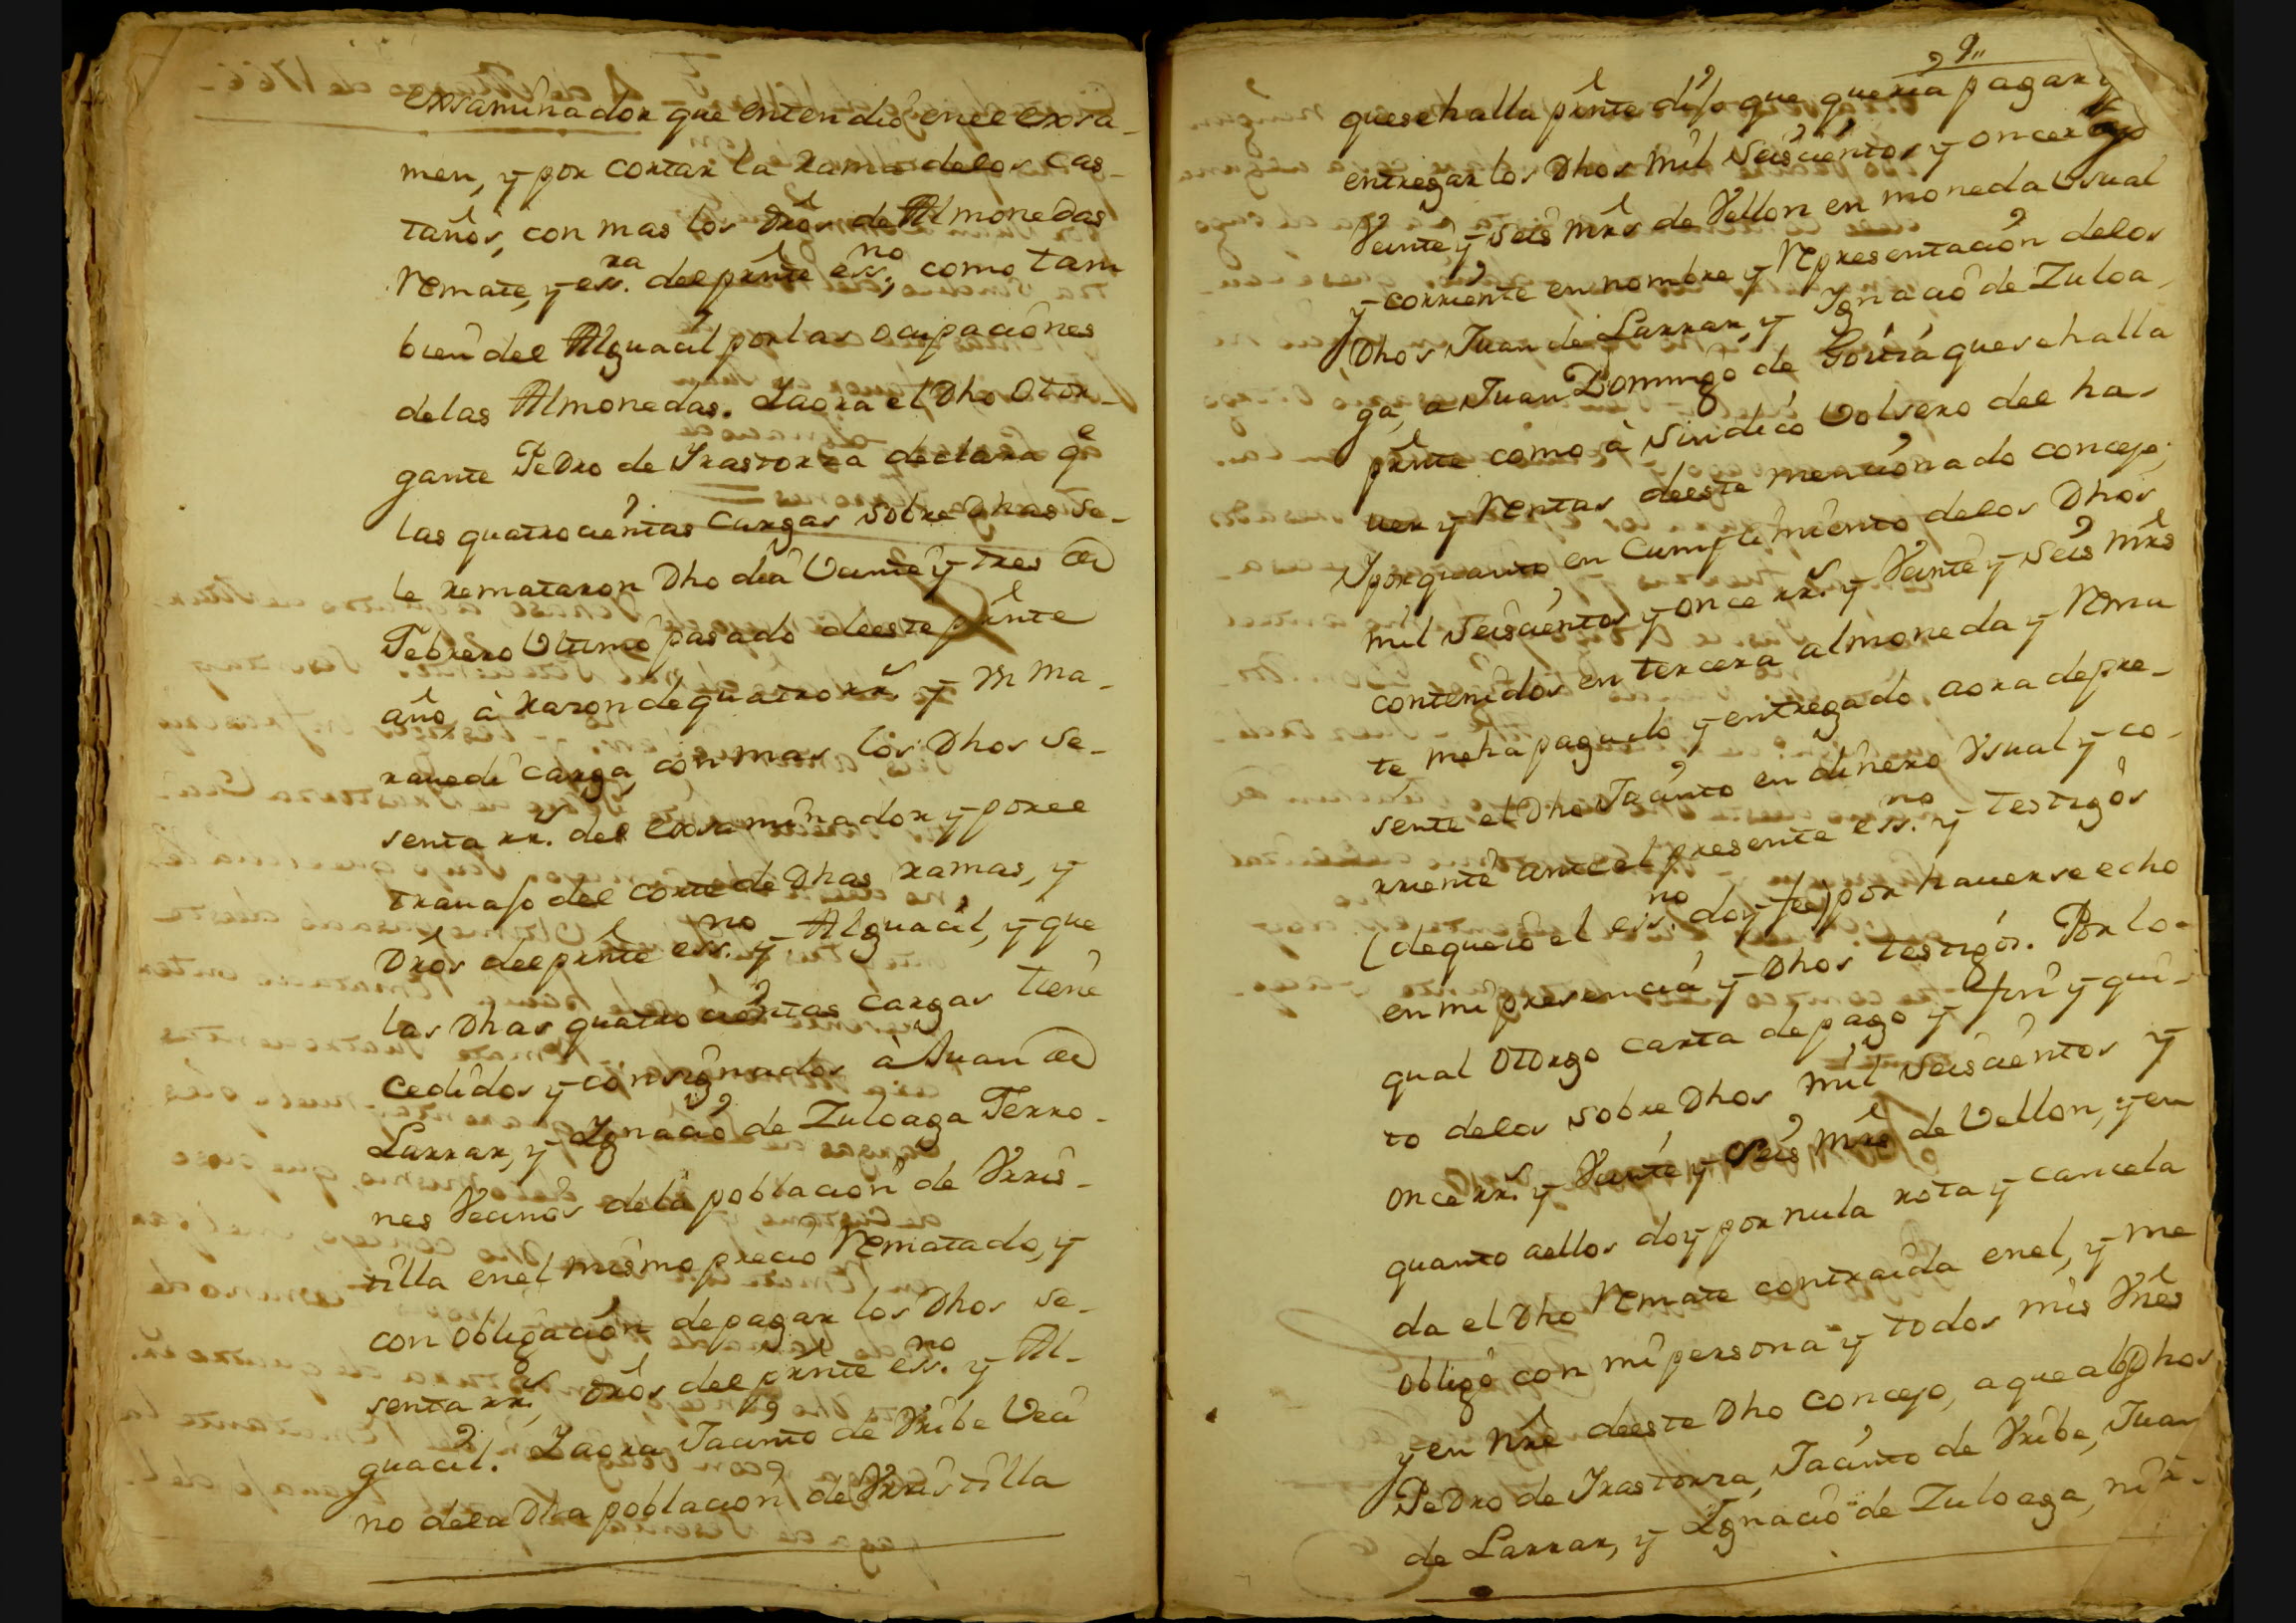 exsaminador que entendio en el exsa-
men, y por cortar la rama delos Cas-
taños, con mas los dros de Almonedas
remate, y essra. del prnte essno, como tam
bien del Alguacil por las ocupaciones
delas Almonedas. Y aora el Dho Otor-
gante Pedro de Yrastorza declara q̃
las quatrocientas Cargas sobre Dhas se-
le remataron Dho dia Veinte y tres de
Febrero Ultimo pasado de este prnte
año, à razon de quatro rrs. y un ma-
ravedi carga, con mas los Dhos se-
senta rrs. del exsaminador y por el
travajo del corte de Dhas ramas, y
Dros del prnte essno. y Alguacil, y que
las Dhas quatrocientas cargas tiene
cedidos y consignados à Juan de
Larrar, y Ygnacio de Zuloaga Ferro-
nes Vecinos dela poblacion de Urris-
tilla en el mismo precio rematado, y
con obligacion de pagar los Dhos se-
senta rrs, dros del prnte essno. y Al-
guacil. Y aora Jacinto de Uribe Veci
no dela Dha poblacion de Urristilla
9,,
que se halla prnte dijo que queria pagar y
entregar los Dhos mil Seiscientos y once rrs
Veinte y seis mrs de Vellon en moneda Usual
y corriente en nombre y representacion delos
Dhos Juan de Larrar, y Ygnacio de Zuloa-
ga, a Juan Domingo de Goiria que se halla
prnte como à Sindico Volsero del ha-
ver y rentas de este mencionado concejo,
Y por quanto en Cumplimiento delos Dhos
mil Seiscientos y once rrs. y Veinte y Seis mrs
contenidos en tercera almoneda y rema
te me ha pagado y entregado aora de pre-
sente el Dho Jacinto en dinero Usual y co-
rriente ante el presente essno. y testigos
(de que io el essno. doy fee) por haverse echo
en mi presencia y Dhos testigos. Por lo-
qual Otorgo carta de pago y fin y qui-
to delos sobre Dhos mil Seiscientos y
once rrs. y Veinte y Seis mrs de Vellon, y en
quanto aellos doy por nula rota y cancela
da el Dho remate contraida en el, y me
obligo con mi persona y todos mis Vnes
y en nre de este Dho Concejo, a que alos Dhos
Pedro de Yrastorza, Jacinto de Uribe, Juan
de Larrar, y Ygnacio de Zuloaga, ni à-